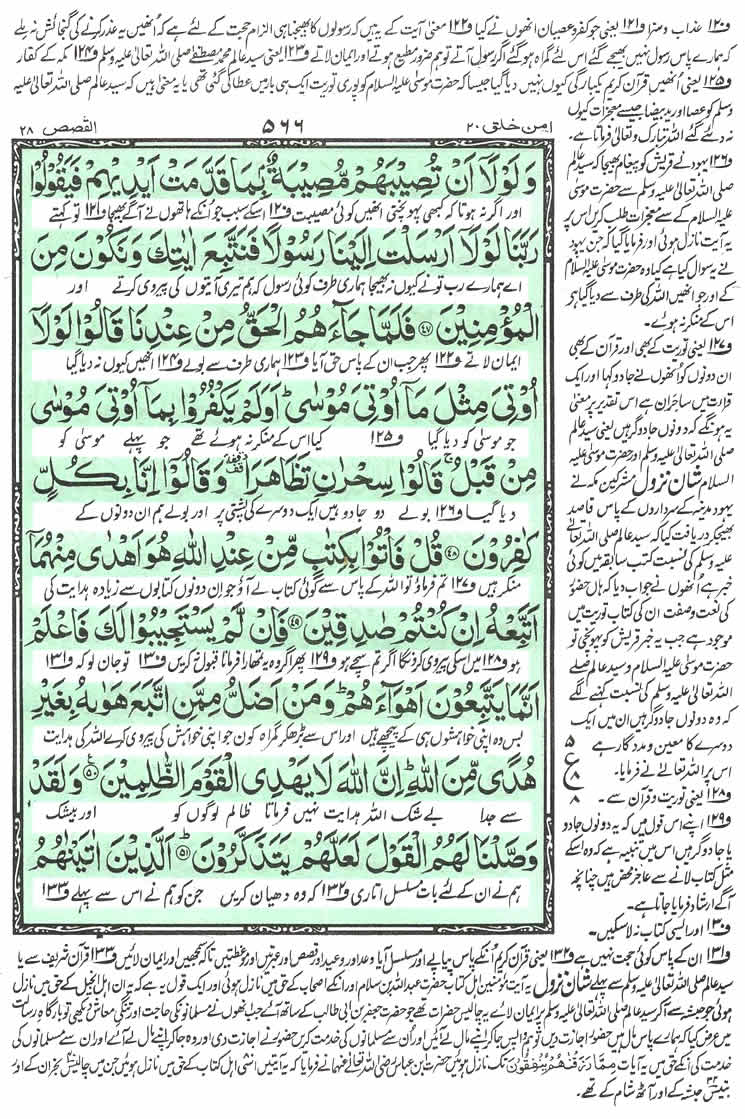 و۱۲۰ عذاب و سزا و۱۲۱ یعنی جو کفر و عصیان انھوں نے کیا و۱۲۲ معنی آیت کے یہ ہیں کہ رسولوں کا بھیجنا ہی الزام حجت کے لئے ہے کہ انھیں یہ عذر کرنے کی گنجائش نہ ملے
کہ ہمارے پاس رسول نہیں بھیجے گئے اس لئے گمراہ ہو گئے اگر رسول آتے تو ہم ضرور مطیع ہوتے اور ایمان لاتے و۱۲۳ یعنی سید عالم محمد مصطفےٰ صلی اللہ تعالیٰ علیہ وسلم و۱۲۴ مکہ کے کفار
و۱۲۵ یعنی انھیں قرآن کریم یکبارگی کیوں نہیں دیا گیا جیسا کہ حضرت موسیٰ علیہ السلام کو پوری توریت ایک ہی بار میں عطا کی گئی تھی یا یہ معنی ہیں کہ سید عالم صلی اللہ تعالیٰ علیہ
وسلم کو عصا اور ید بیضا جیسے معجزات کیوں
نہ دیئے گئے اللہ تبارک و تعالیٰ فرماتا ہے۔
و۱۲۶ یہود نے قریش کو پیغام بھیجا کہ سید عالم
صلی اللہ تعالیٰ علیہ وسلم سے حضرت موسیٰ
علیہ السلام کے سے معجزات طلب کریں اس پر
یہ آیت نازل ہوئی اور فرمایا گیا کہ جن یہود
نے یہ سوال کیا ہے کیا وہ حضرت موسیٰ علیہ السلام
کے اور جو انھیں اللہ کی طرف سے دیا گیا ہے
اس کے منکر نہ ہوئے۔
و۱۲۷ یعنی توریت کے بھی اور قرآن کے بھی
ان دونوں کو انھوں نے جادو کہا اور ایک
قرارت میں ساحران ہے اس تقدیر پر معنی
یہ ہونگے کہ دونوں جادوگر ہیں یعنی سید عالم
صلی اللہ تعالیٰ علیہ وسلم اور حضرت موسیٰ علیہ
السلام شان نزول مشرکین مکہ نے
یہود مدینہ کے سرداروں کے پاس قاصد
بھیجکر دریافت کیا کہ سید عالم صلی اللہ تعالیٰ
علیہ وسلم کی نسبت کتب سابقہ میں کوئی
خبر ہے انھوں نے جواب دیا کہ ہاں حضور
کی نعت و صفت ان کی کتاب توریت میں
موجود ہے جب یہ خبر قریش کو پہونچی تو
حضرت موسیٰ علیہ السلام و سید عالم صلی
اللہ تعالیٰ علیہ وسلم کی نسبت کہنے لگے
کہ وہ دونوں جادوگر ہیں ان میں ایک
دوسرے کا معین و مددگار ہے
اس پر اللہ تعالیٰ نے فرمایا۔
و۱۲۸ یعنی توریت و قرآن سے۔
و۱۲۹ اپنے اس قول میں کہ یہ دونوں جادو
یا جادوگر ہیں اس میں تنبیہ ہے کہ وہ اسکے
مثل کتاب لانے سے عاجز محض ہیں چنانچہ
آگے ارشاد فرمایا جاتا ہے۔
و۱۳۰ اور ایسی کتاب نہ لاسکیں۔
امن خلق ۲۰ ۵۶۶ القصص ۲۸
وَلَوْلَآ اَنْ تُصِيْبَهُمْ مُّصِيْبَةٌۢ بِمَا قَدَّمَتْ اَيْدِيْهِمْ فَيَقُوْلُوْا
اور اگر نہ ہوتا کہ کبھی پہونچتی انھیں کوئی مصیبت و۱۲۰ اسکے سبب جو انکے ہاتھوں نے آگے بھیجا و۱۲۱ تو کہتے
رَبَّنَا لَوْلَآ اَرْسَلْتَ اِلَيْنَا رَسُوْلًا فَنَتَّبِعَ اٰيٰتِكَ وَنَكُوْنَ مِنَ
اے ہمارے رب تو نے کیوں نہ بھیجا ہماری طرف کوئی رسول کہ ہم تیری آیتوں کی پیروی کرتے اور
الْمُؤْمِنِيْنَ ۴۷ فَلَمَّا جَآءَهُمُ الْحَقُّ مِنْ عِنْدِنَا قَالُوْا لَوْلَآ
ایمان لاتے و۱۲۲ پھر جب ان کے پاس حق آیا و۱۲۳ ہماری طرف سے بولے و۱۲۴ انھیں کیوں نہ دیا گیا
اُوْتِيَ مِثْلَ مَآ اُوْتِيَ مُوْسٰى ۭ اَوَلَمْ يَكْفُرُوْا بِمَآ اُوْتِيَ مُوْسٰى
جو موسیٰ کو دیا گیا و۱۲۵ کیا اس کے منکر نہ ہوئے تھے جو پہلے موسیٰ کو
مِنْ قَبْلُ ۚ قَالُوْا سِحْرٰنِ تَظَاهَرَا وَقَالُوْٓا اِنَّا بِكُلٍّ
دیا گیا و۱۲۶ بولے دو جادو ہیں ایک دوسرے کی پشتی پر اور بولے ہم ان دونوں کے
كٰفِرُوْنَ ۴۸ قُلْ فَاْتُوْا بِكِتٰبٍ مِّنْ عِنْدِ اللّٰهِ هُوَ اَهْدٰى مِنْهُمَآ
منکر ہیں و۱۲۷ تم فرماؤ تو اللہ کے پاس سے کوئی کتاب لے آؤ جو ان دونوں کتابوں سے زیادہ ہدایت کی
اَتَّبِعْهُ اِنْ كُنْتُمْ صٰدِقِيْنَ ۴۹ فَاِنْ لَّمْ يَسْتَجِيْبُوْا لَكَ فَاعْلَمْ
ہو و۱۲۸ میں اسکی پیروی کروں گا اگر تم سچے ہو و۱۲۹ پھر اگر وہ یہ تمھارا فرمانا قبول نہ کریں و۱۳۰ تو جان لو کہ و۱۳۱
اَنَّمَا يَتَّبِعُوْنَ اَهْوَآءَهُمْ ۭ وَمَنْ اَضَلُّ مِمَّنِ اتَّبَعَ هَوٰىهُ بِغَيْرِ
بس وہ اپنی خواہشوں ہی کے پیچھے ہیں اور اس سے بڑھکر گمراہ کون جو اپنی خواہش کی پیروی کرے اللہ کی ہدایت
هُدًى مِّنَ اللّٰهِ ۭ اِنَّ اللّٰهَ لَا يَهْدِي الْقَوْمَ الظّٰلِمِيْنَ ۵۰ وَلَقَدْ
سے جدا بے شک اللہ ہدایت نہیں فرماتا ظالم لوگوں کو اور بیشک
وَصَّلْنَا لَهُمُ الْقَوْلَ لَعَلَّهُمْ يَتَذَكَّرُوْنَ ۵۱ اَلَّذِيْنَ اٰتَيْنٰهُمُ
ہم نے ان کے لئے بات مسلسل اتاری و۱۳۲ کہ وہ دھیان کریں جن کو ہم نے اس سے پہلے و۱۳۳
۵
ع
۸
۸
و۱۳۱ ان کے پاس کوئی حجت نہیں ہے و۱۳۲ یعنی قرآن کریم انکے پاس پیاپے اور مسلسل آیا وعد اور وعید اور قصص اور عبرتیں اور موعظتیں تاکہ سمجھیں اور ایمان لائیں و۱۳۳ قرآن شریف سے یا
سید عالم صلی اللہ تعالیٰ علیہ وسلم سے پہلے شان نزول یہ آیت مومنین اہل کتاب حضرت عبد اللہ بن سلام اور انکے اصحاب کے حق میں نازل ہوئی اور ایک قول یہ ہے کہ یہ ان اہل انجیل کے حق میں نازل
ہوئی جو حبشہ سے آکر سید عالم صلی اللہ تعالیٰ علیہ وسلم پر ایمان لائے یہ چالیس حضرات تھے جو حضرت جعفر بن ابی طالب کے ساتھ آئے جب انھوں نے مسلمانوں کی حاجت اور تنگی معاش دیکھی تو بارگاہ رسالت
میں عرض کیا کہ ہمارے پاس مال ہیں حضور اجازت دیں تو ہم واپس جاکر اپنے مال لے آئیں اور ان سے مسلمانوں کی خدمت کریں حضور نے اجازت دی اور وہ جاکر اپنے مال لے آئے اور ان سے مسلمانوں کی
خدمت کی انکے حق میں یہ آیات مِمَّا رَزَقْنٰهُمْ يُنْفِقُوْنَ تک نازل ہوئیں حضرت ابن عباس رضی اللہ تعالیٰ عنہما نے فرمایا کہ یہ آیتیں انھیں اہل کتاب کے حق میں نازل ہوئیں جن میں چالیس نجران کے اور
بتیس حبشہ کے اور آٹھ شام کے تھے۔